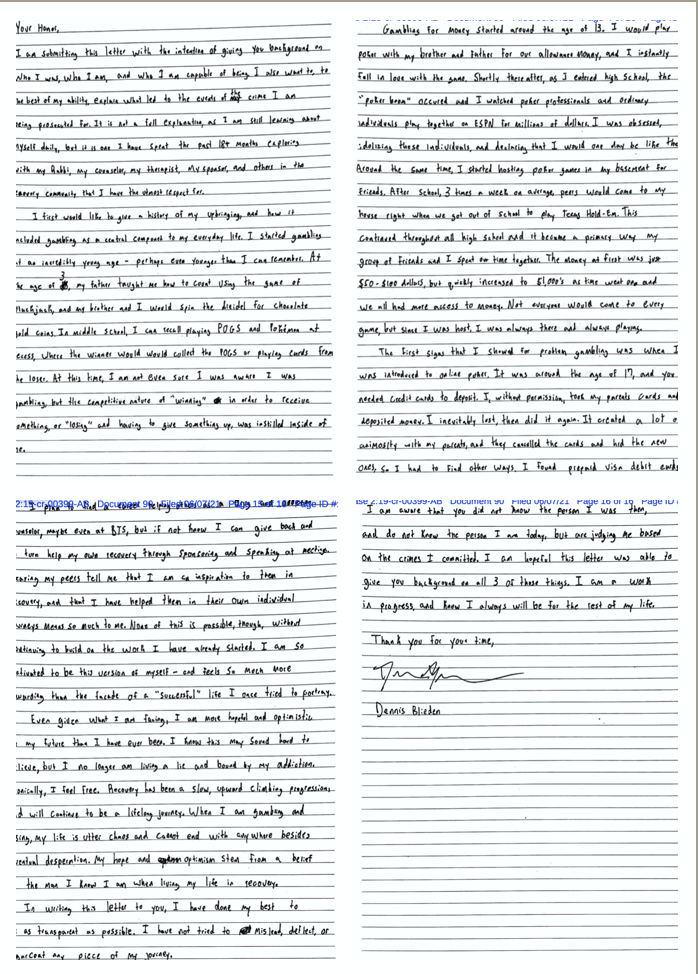 Your Honor,
I am submitting this letter with the intention of giving you background on
who I was, who I am, and who I am capable of being. I also want to, to
the best of my ability, explain what led to the events of the crime I am
being prosecuted for. It is not a full explanation, as I am still learning about
myself daily, but it is one I have spent the past 18+ months exploring
with my Rabbi, my counselor, my therapist, my sponsor, and others in the
recovery community that I have the utmost respect for.
I first would like to give a history of my upbringing, and how it
included gambling as a central component to my everyday life. I started gambling
at an incredibly young age - perhaps even younger than I can remember. At
the age of 3, my father taught me how to count using the game of
Blackjack, and my brother and I would spin the dreidel for chocolate
gold coins. In middle school, I can recall playing POGS and Pokémon at
recess, where the winner would would collect the POGS or playing cards from
the loser. At this time, I am not even sure I was aware I was
gambling, but the competitive nature of "winning" in order to receive
something, or "losing" and having to give something up, was instilled inside of
me.
Gambling for money started around the age of 13. I would play
poker with my brother and father for our allowance money, and I instantly
fell in love with the game. Shortly thereafter, as I entered high school, the
"poker boom" occured and I watched poker professionals and ordinary
individuals play together on ESPN for millions of dollars. I was obsessed,
idolizing those individuals, and declaring that I would one day be like the
Around the same time, I started hosting poker games in my basement for
friends. After school, 3 times a week on average, peers would come to my
house right when we got out of school to play Texas Hold-Em. This
continued throughout all high school and it became a primary way my
group of friends and I spent our time together. The money at first was just
$50-$100 dollars, but quickly increased to $1,000's as time went on and
we all had more access to money. Not everyone would come to every
game, but since I was host, I was always there and always playing.
The first signs that I showed for problem gambling was when I
was introduced to online poker. It was around the age of 17, and you
needed credit cards to deposit. I, without permission, took my parents cards and
deposited money. I inevitably lost, then did it again. It created a lot o
animosity with my parents, and they cancelled the cards and hid the new
ones, so I had to find other ways. I found prepaid visa debit cards
2:19-cr-00399-AB Document 90 Filed 06/07/21 Page 15 of 16 Page ID #:
counselor, maybe even at BTS, but if not know I can give back and
turn help my own recovery through sponsoring and speaking at meetings.
hearing my peers tell me that I am an inspiration to them in
recovery, and that I have helped them in their own individual
journeys means so much to me. None of this is possible, though, without
continuing to build on the work I have already started. I am so
motivated to be this version of myself - and feels so much more
rewarding than the facade of a "successful" life I once tried to portray.
Even given what I am facing, I am more hopeful and optimistic
my future than I have ever been. I know this may sound hard to
believe, but I no longer am living a lie and bound by my addiction.
Ironically, I feel free. Recovery has been a slow, upward climbing progression,
d will continue to be a lifelong journey. When I am gambling and
using, my life is utter chaos and cannot end with anywhere besides
eventual desperation. My hope and optimism stem from a belief
the man I know I am when living my life in recovery.
In writing this letter to you, I have done my best to
as transparent as possible. I have not tried to mislead, deflect, or
sugarcoat any piece of my journey.
se 2:19-cr-00399-AB Document 90 Filed 06/07/21 Page 16 of 16 Page ID
I am aware that you did not know the person I was then,
and do not know the person I am today, but are judging me based
on the crimes I committed. I am hopeful this letter was able to
give you background on all 3 of those things. I am a work
in progress, and know I always will be for the rest of my life.
Thank you for your time,
Dennis Blieden